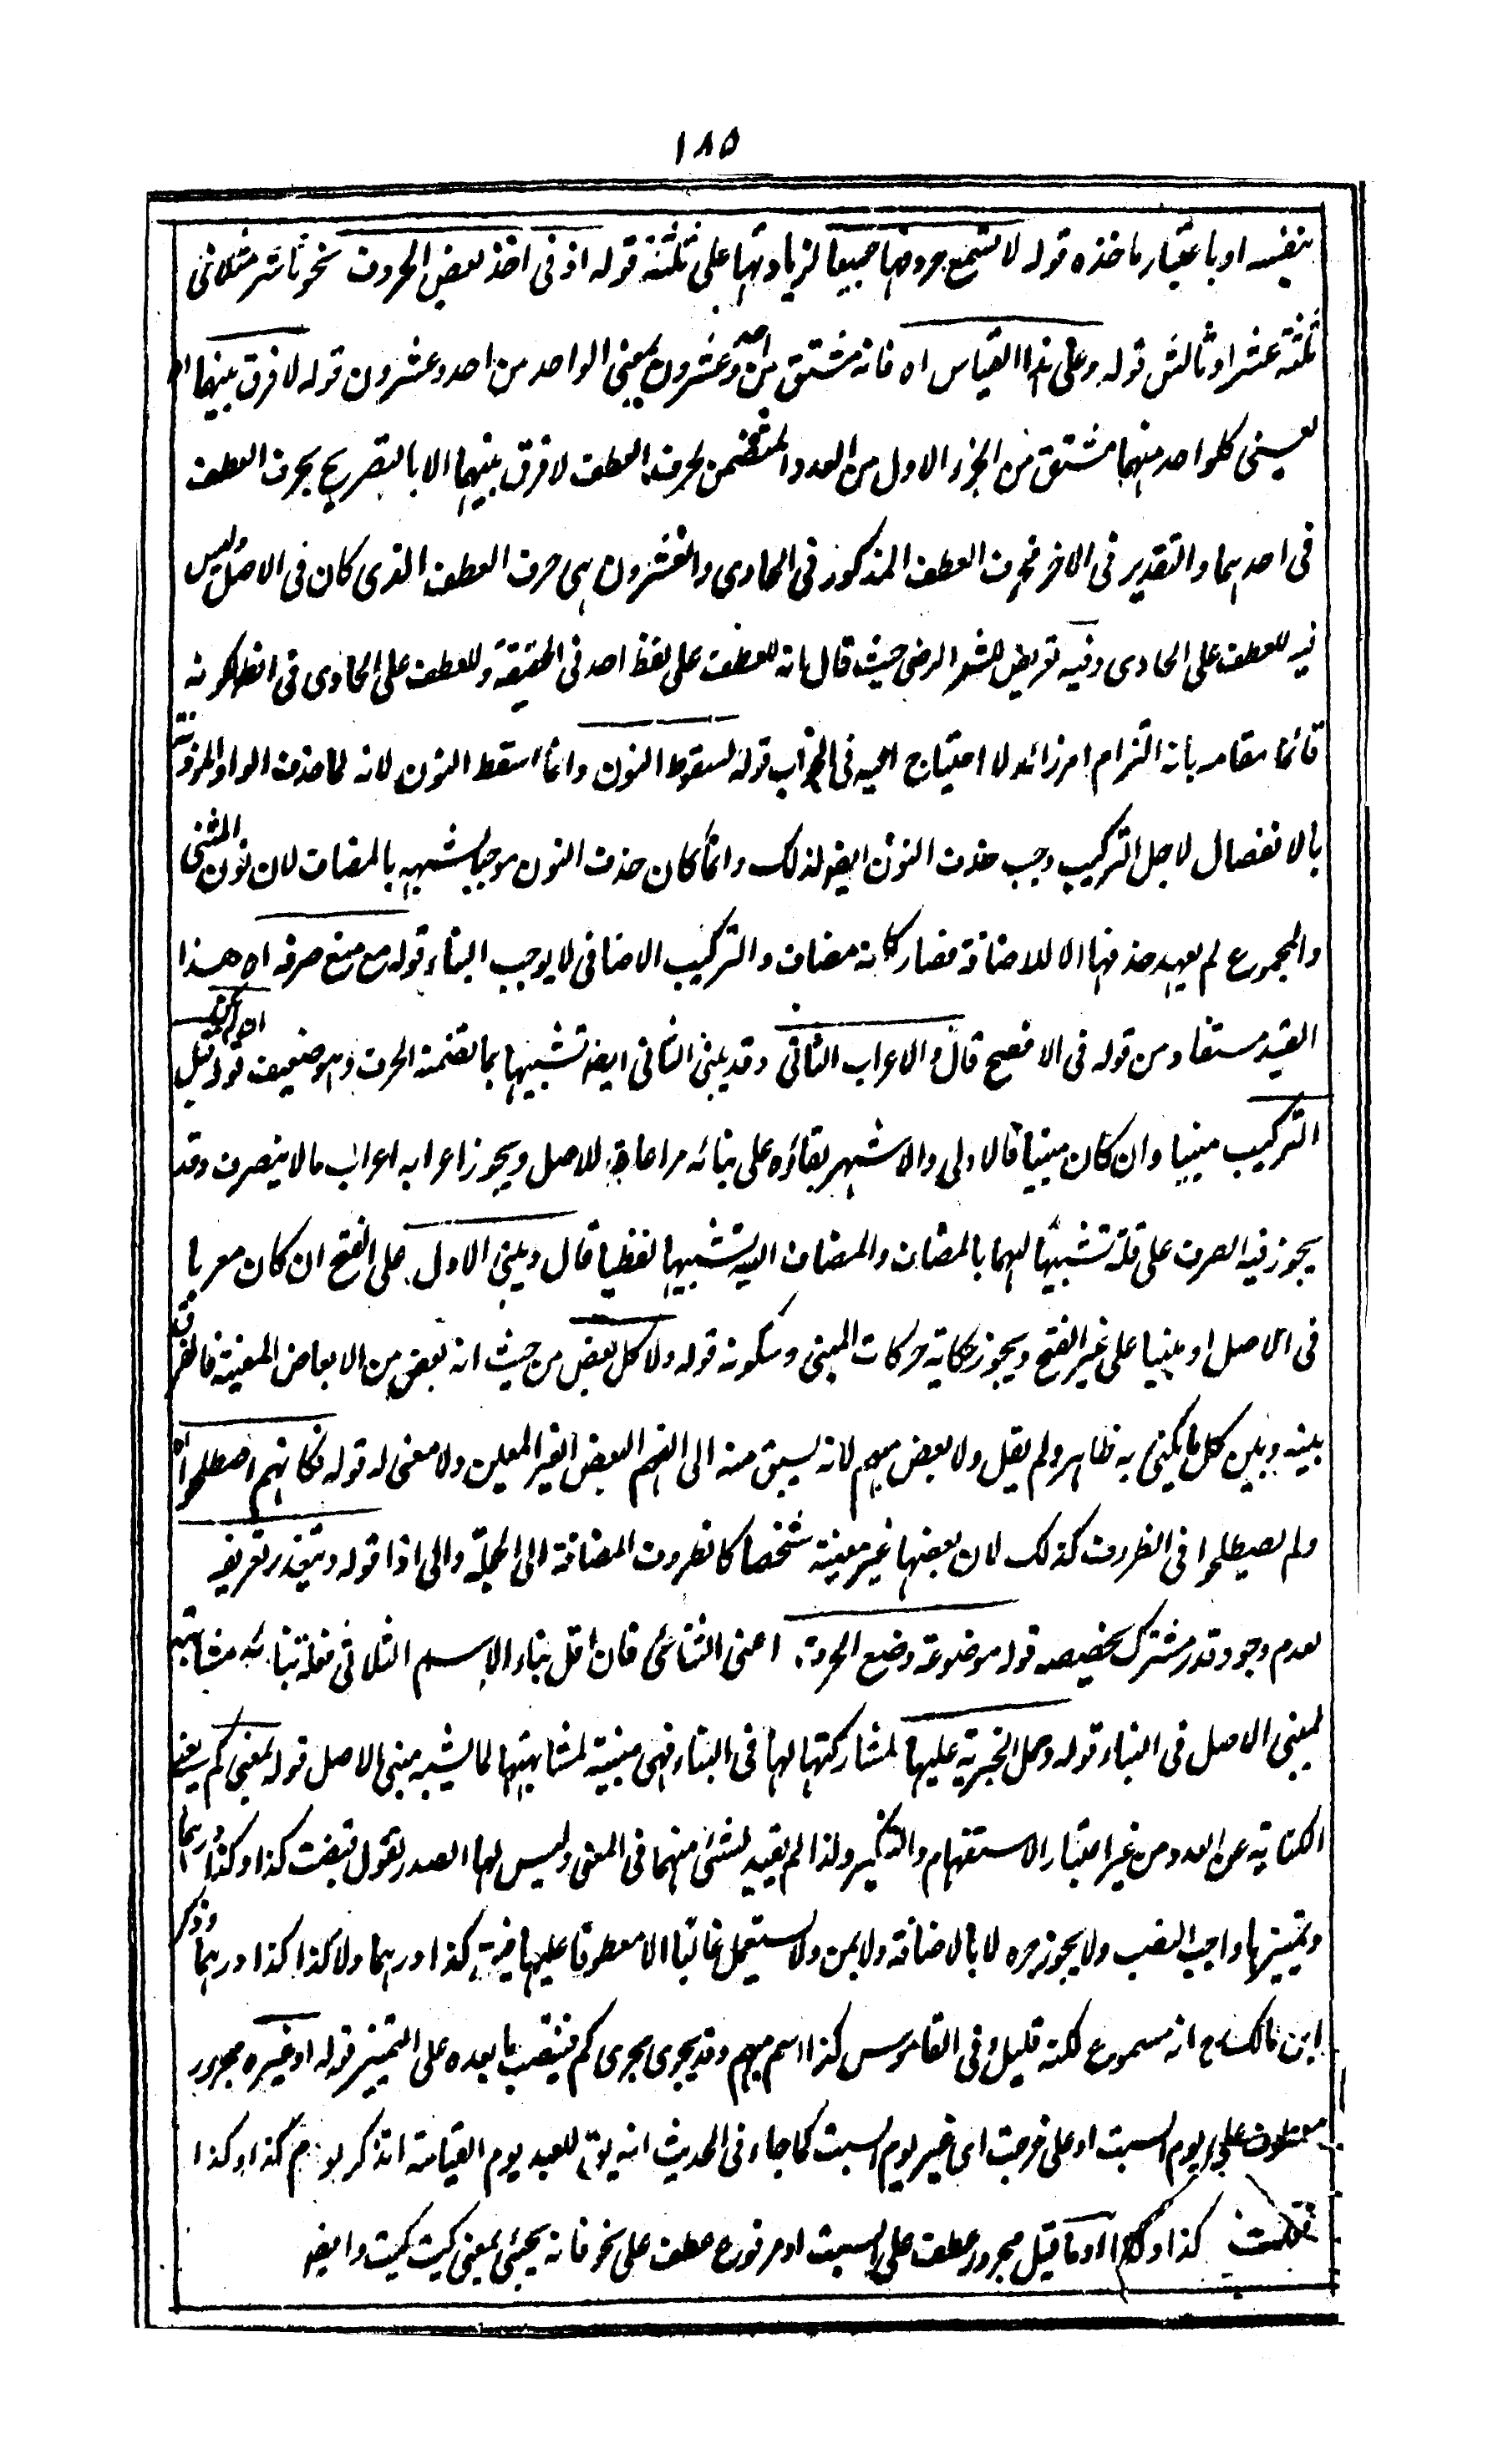 ١٨٥
بنفسه او باعتبار ماخذه قوله لا تستجمع حروفها جميعا لزيادتها على ثلثة قوله اذ فى اخذ بعض الحروف نحو ثاشر مثلا فى
ثلثة عشر او ثالش قوله وعلى هذا القياس اه فانه مشتق من احد وعشرون بمعنى الواحد من احد وعشرون قوله لا فرق بينهما اه
يعنى كلواحد منهما مشتق من الجزء الاول من العدد المتضمن لحرف العطف لا فرق بينهما الا بالتصريح بحرف العطف
فى احدهما والتقدير فى الاخر فحرف العطف المذكور فى الحادى والعشرون هى حرف العطف الذى كان فى الاصل وليس
فيه للعطف على الحادى وفيه تعريض للشيخ الرضى حيث قال بانه للعطف على لفظ احد فى الحقيقة وللعطف على الحادى فى الظاهر لكونه
قائما مقامه بانه التزام امر زائد لا احتياج اليه فى الجواب قوله لسقوط النون وانما اسقط النون لانه لما حذفت الواو المؤذنة
بالانفصال لاجل التركيب وجب حذف النون ايضا لذلك وانما كان حذف النون موجبا لشبهه بالمضاف لان نون المثنى
والمجموع لم يعهد حذفها الا للاضافة فصار كانه مضاف والتركيب الاضافى لا يوجب البناء قوله مع منع صرفه اه هذا
القيد مستفاد من قوله فى الافصح قال والاعراب الثانى وقد يبنى الثانى ايضا تشبيها بما تضمنه الحرف وهو ضعيف قوله ان لم يكن قبل
التركيب مبنيا وان كان مبنيا فالاولى والاشهر بقاؤه على بنائه مراعاة للاصل ويجوز اعرابه اعراب ما لا ينصرف وقد
يجوز فيه الصرف على قلة تشبيها لهما بالمضاف والمضاف اليه تشبيها لفظيا قال ويبنى الاول على الفتح ان كان معربا
فى الاصل او مبنيا على غير الفتح ويجوز حكاية حركات المبنى وسكونه قوله ولا كل بعض من حيث انه بعض من الابعاض المعينة فالفرق
بينه وبين كل ما يكنى به ظاهر ولم يقل ولا بعض مبهم لانه يسبق منه الى الفهم البعض الغير المعين ولا معنى له قوله فكانهم اصطلحوا اه
ولم يصطلحوا فى الظروف كذلك لان بعضها غير معينة شخصا كالظروف المضافة الى الجملة والى اذا قوله ويتعذر تعريفه
لعدم وجود قدر مشترك يخصصه قوله موضوعة وضع الحروف اعنى الثنائى فان اقل بناء الاسم الثلاثى فعلة بنائه مشابهته
لمبنى الاصل فى البناء قوله وحمل الخبرية عليها لمشاركتها لها فى البناء فهى مبنية لمشابهتها لما يشبه مبنى الاصل قوله بمعنى كم يعنى
الكناية عن العدد من غير اعتبار الاستفهام والتكثير ولذا لم يقيد لشئ منهما فى المعنى وليس لها الصدر تقول قبضت كذا وكذا درهما
وتمييزها واجب النصب ولا يجوز جره لا بالاضافة ولا بمن ولا يستعمل غالبا الا معطوفا عليها كذا درهما ولا كذا كذا درهما وذكر
ابن مالك انه مسموع لكنه قليل وفى القاموس كذا اسم مبهم وقد يجرى مجرى كم فينتصب ما بعده على التمييز قوله او غيره مجرور
معطوف على يوم السبت او على خرجت اى غير يوم السبت كما جاء فى الحديث انه يوتى للعبد يوم القيامة اتذكر يوم كذا وكذا
فعلت كذا وكذا او ما قيل مجرور عطف على السبت او مرفوع عطف على نحو فانه يجيئ بمعنى كيت كيت وايضا